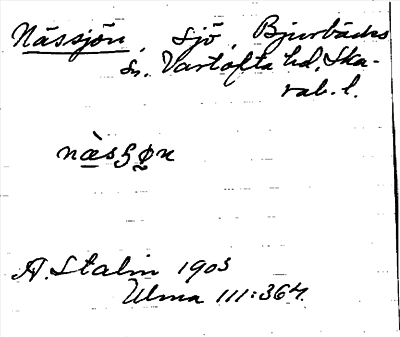 Nässjön, sjö, Bjurbäcks
sn. Vartofta hd, Ska-
rab. l.
A. Stalin 1903
Ulma 111:364.